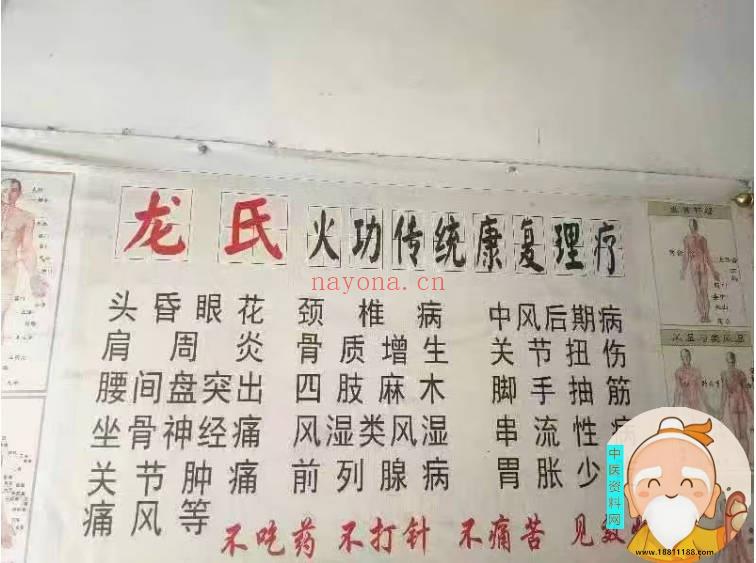 龙氏火功传统康复理疗
nayona.cn
头昏眼花 颈椎病 中风后期病
肩周炎 骨质增生 关节扭伤
腰间盘突出 四肢麻木 脚手抽筋
坐骨神经痛 风湿类风湿 串流性
关节肿痛 前列腺病 胃胀少
痛风等
不吃药 不打针 不痛苦 见效
中医资料网
www.18811188.com